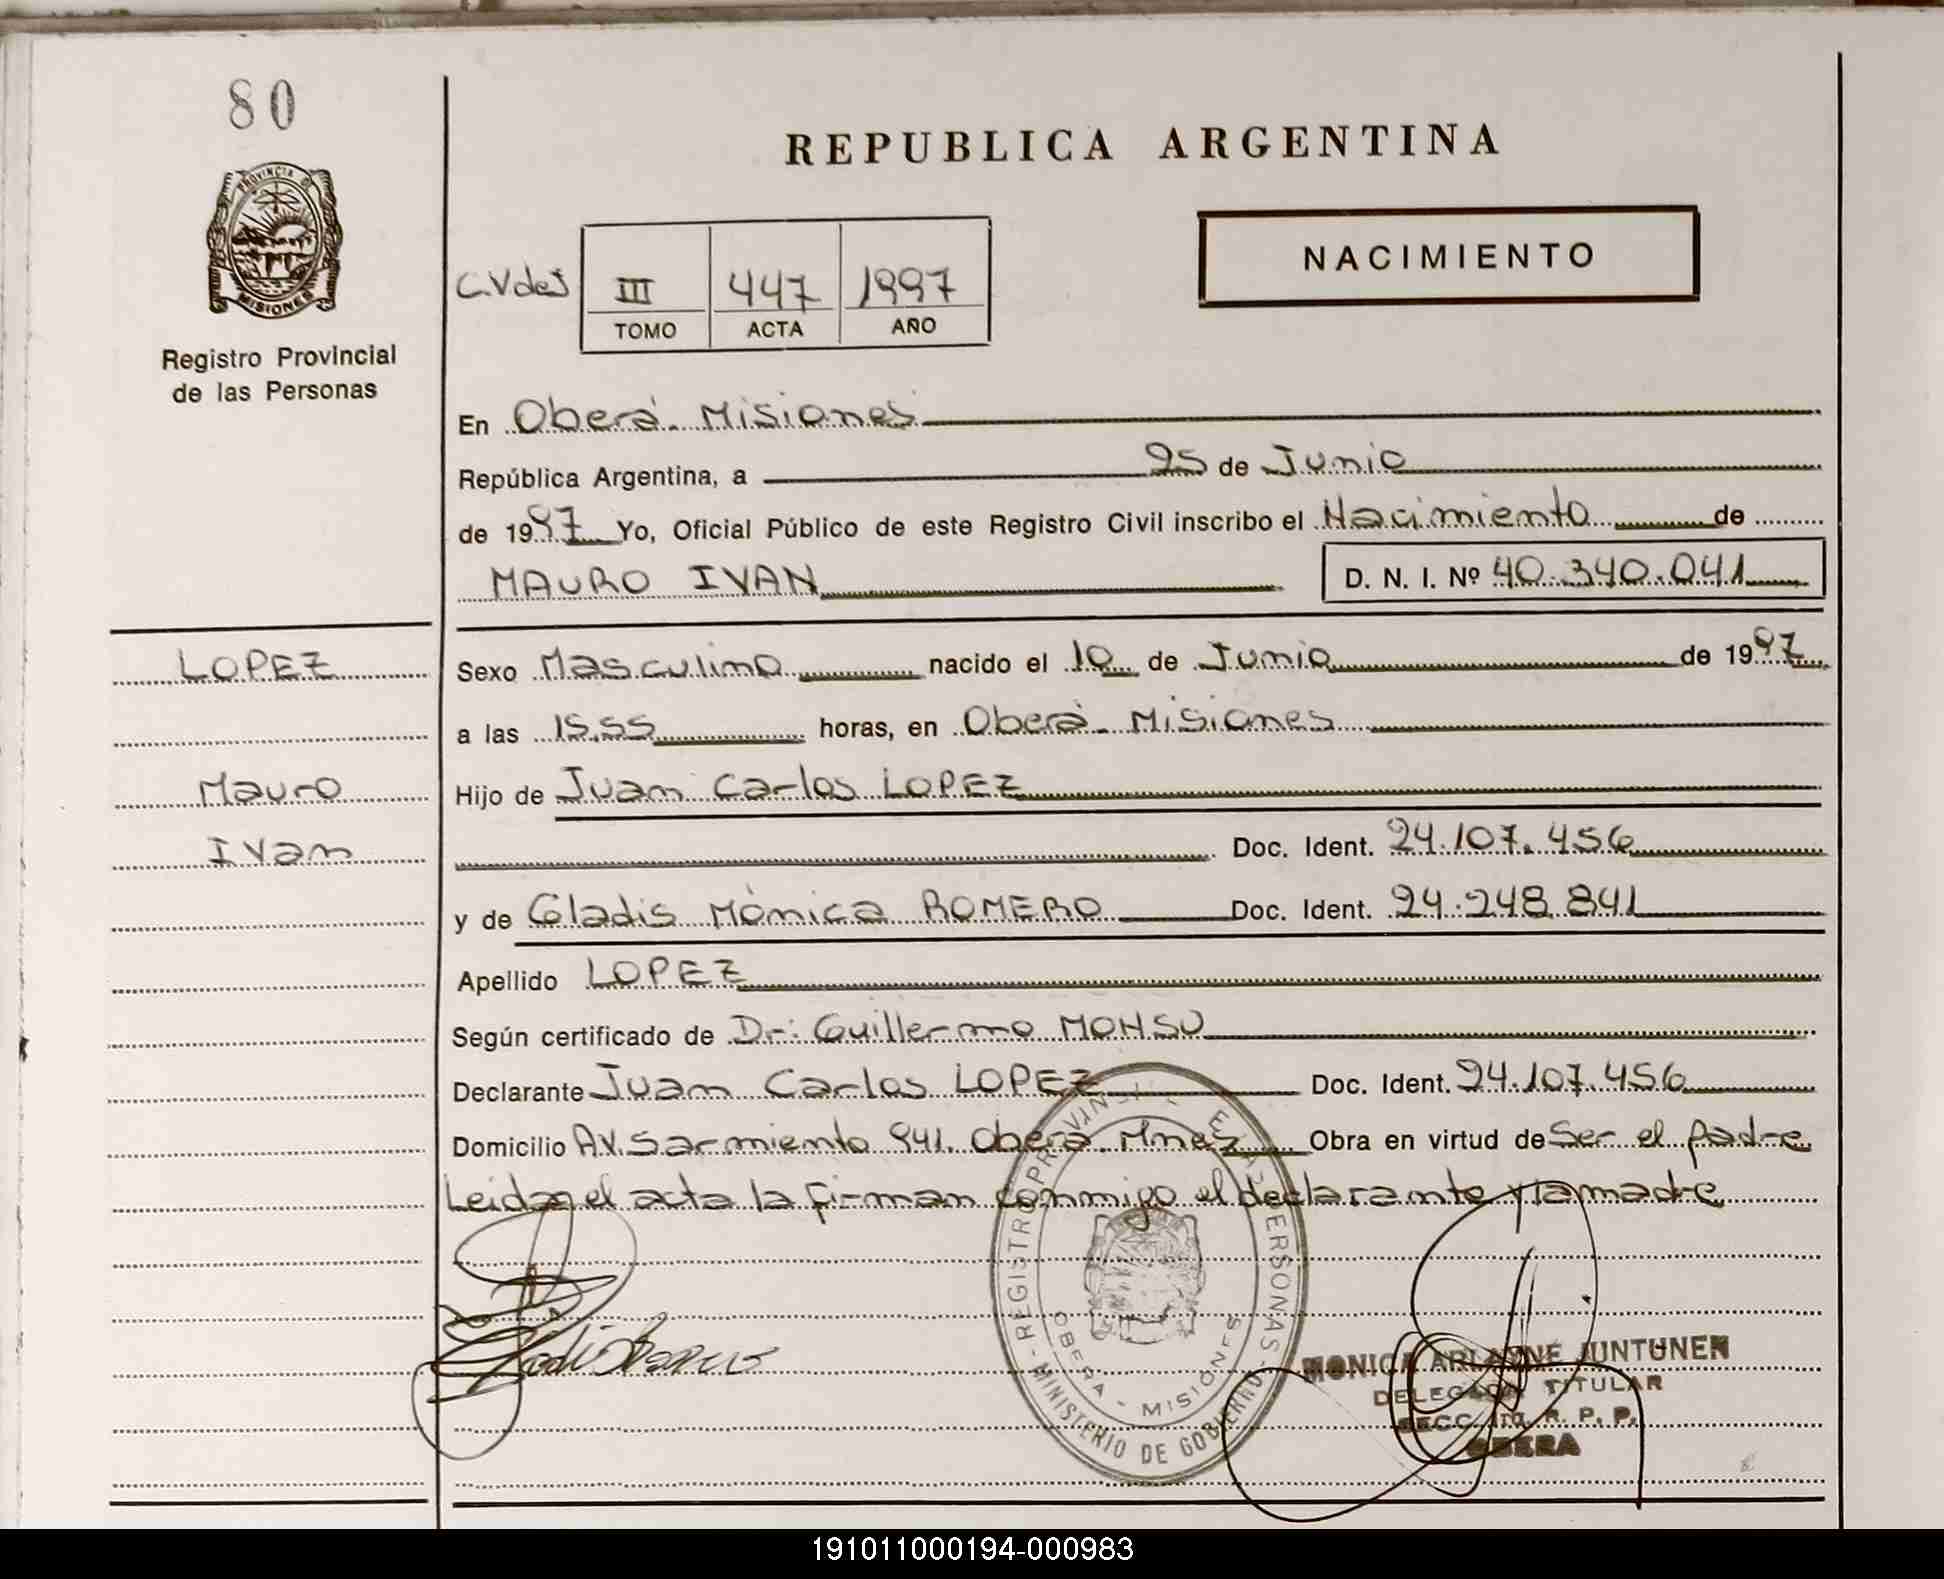 80
REPUBLICA ARGENTINA
PROVINCIA DE
MISIONES
Registro Provincial
de las Personas
NACIMIENTO
III 447 1997
TOMO ACTA AÑO
En Oberá - Misiones
República Argentina, a 25 de Junio
de 1997 Yo, Oficial Público de este Registro Civil inscribo el Nacimiento de
MAURO IVAN D. N. I. Nº 40.340.041
LOPEZ
Mauro
Ivan
Sexo Masculino nacido el 10 de Junio de 1997
a las 15.55 horas, en Oberá - Misiones
Hijo de Juan Carlos LOPEZ
Doc. Ident. 24.107.456
y de Gladis Mónica ROMERO Doc. Ident. 24.248.841
Apellido LOPEZ
Según certificado de Dr: Guillermo
Declarante Juan Carlos LOPEZ Doc. Ident. 24.107.456
Domicilio AV. Sarmiento 941. Oberá. Mnes Obra en virtud de Ser el padre
Leida el acta la firman conmigo el declarante y la madre
REGISTRO PROVINCIAL DE LAS PERSONAS
MINISTERIO DE GOBIERNO
OBERA - MISIONES
MONICA ARLAYNE JUNTUNEN
DELEGADA TITULAR
SECC. R. P. P.
OBERA
191011000194-000983